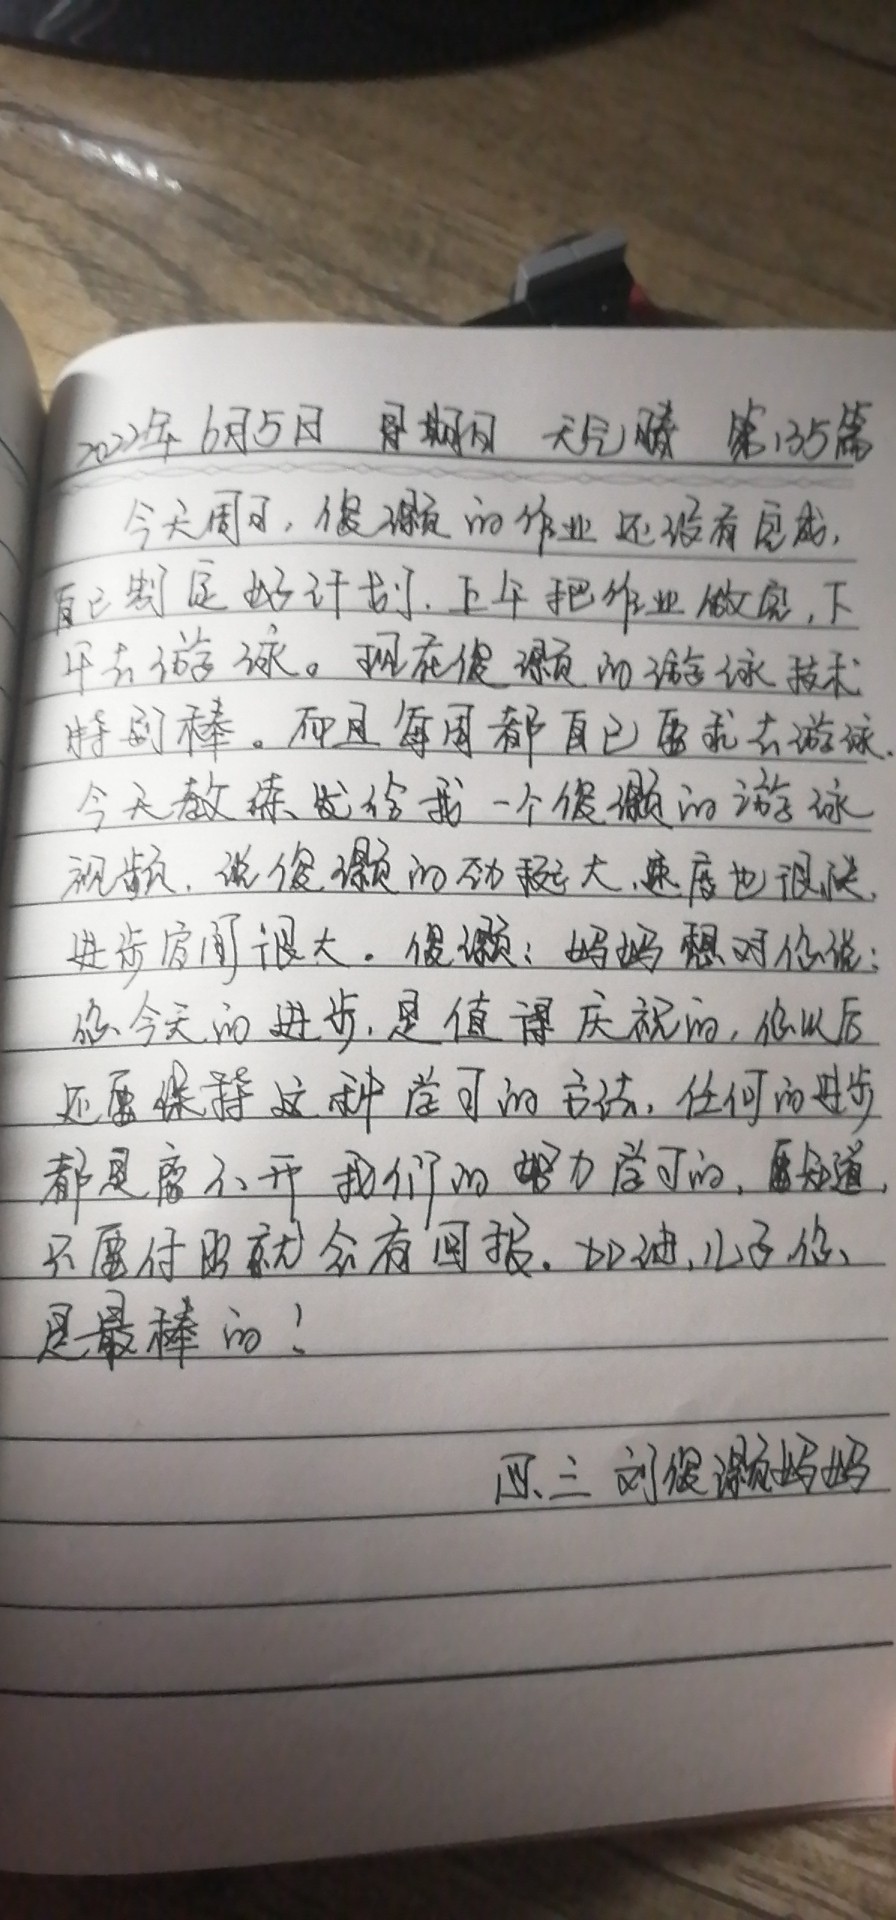 2022年6月5日 星期日 天气晴 第135篇
今天周日，俊灏的作业还没有完成，
自己制定好计划，上午把作业做完，下
午去游泳。现在俊灏的游泳技术
特别棒。而且每周都自己要求去游泳.
今天教练发给我一个俊灏的游泳
视频，说俊灏的劲挺大，速度也很快，
进步空间很大。俊灏：妈妈想对你说：
你今天的进步，是值得庆祝的，你以后
还要保持这种学习的方法，任何的进步
都是离不开我们的努力学习的，要知道，
只要付出就会有回报。加油，儿子你
是最棒的！
四、三 刘俊灏妈妈